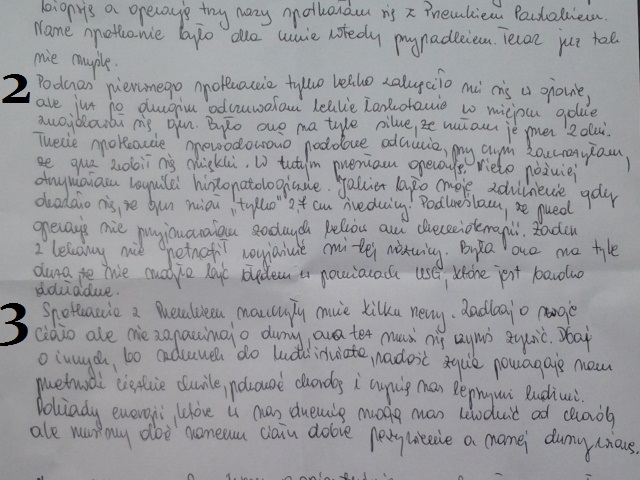 biopsję a operację trzy razy spotkałam się z Przemkiem Pawlakiem.
Nasze spotkanie było dla mnie wtedy przypadkiem. Teraz już tak
nie myślę.
2 Podczas pierwszego spotkania tylko lekko zakręciło mi się w głowie,
ale już po drugim odczuwałam lekkie łaskotanie w miejscu gdzie
znajdował się guz. Było ono na tyle silne, że miałam je przez 2 dni.
Trzecie spotkanie spowodowało podobne odczucia, przy czym zauważyłam,
że guz zrobił się miękki. W lutym przeszłam operację. Nieco później
otrzymałam wyniki histopatologiczne. Jakież było moje zdziwienie gdy
okazało się, że guz miał "tylko" 2,7 cm średnicy. Podkreślam, że przed
operacją nie przyjmowałam żadnych leków ani chemioterapii. Żaden
z lekarzy nie potrafił wyjaśnić mi tej różnicy. Była ona na tyle
duża że nie mogła być błędem w pomiarach USG, które jest bardzo
dokładne.
3 Spotkania z Przemkiem nauczyły mnie kilku rzeczy. Zadbaj o swoje
ciało ale nie zapominaj o duszy, ona też musi się czymś żywić. Dbaj
o innych, bo szacunek do ludzi i świata, radość życia pomagają nam
przetrwać ciężkie chwile, pokonać chorobę i czynią nas lepszymi ludźmi.
Pokłady energii, które w nas drzemią mogą nas uwolnić od chorób
ale musimy dać naszemu ciału dobre pożywienie a naszej duszy wiarę.